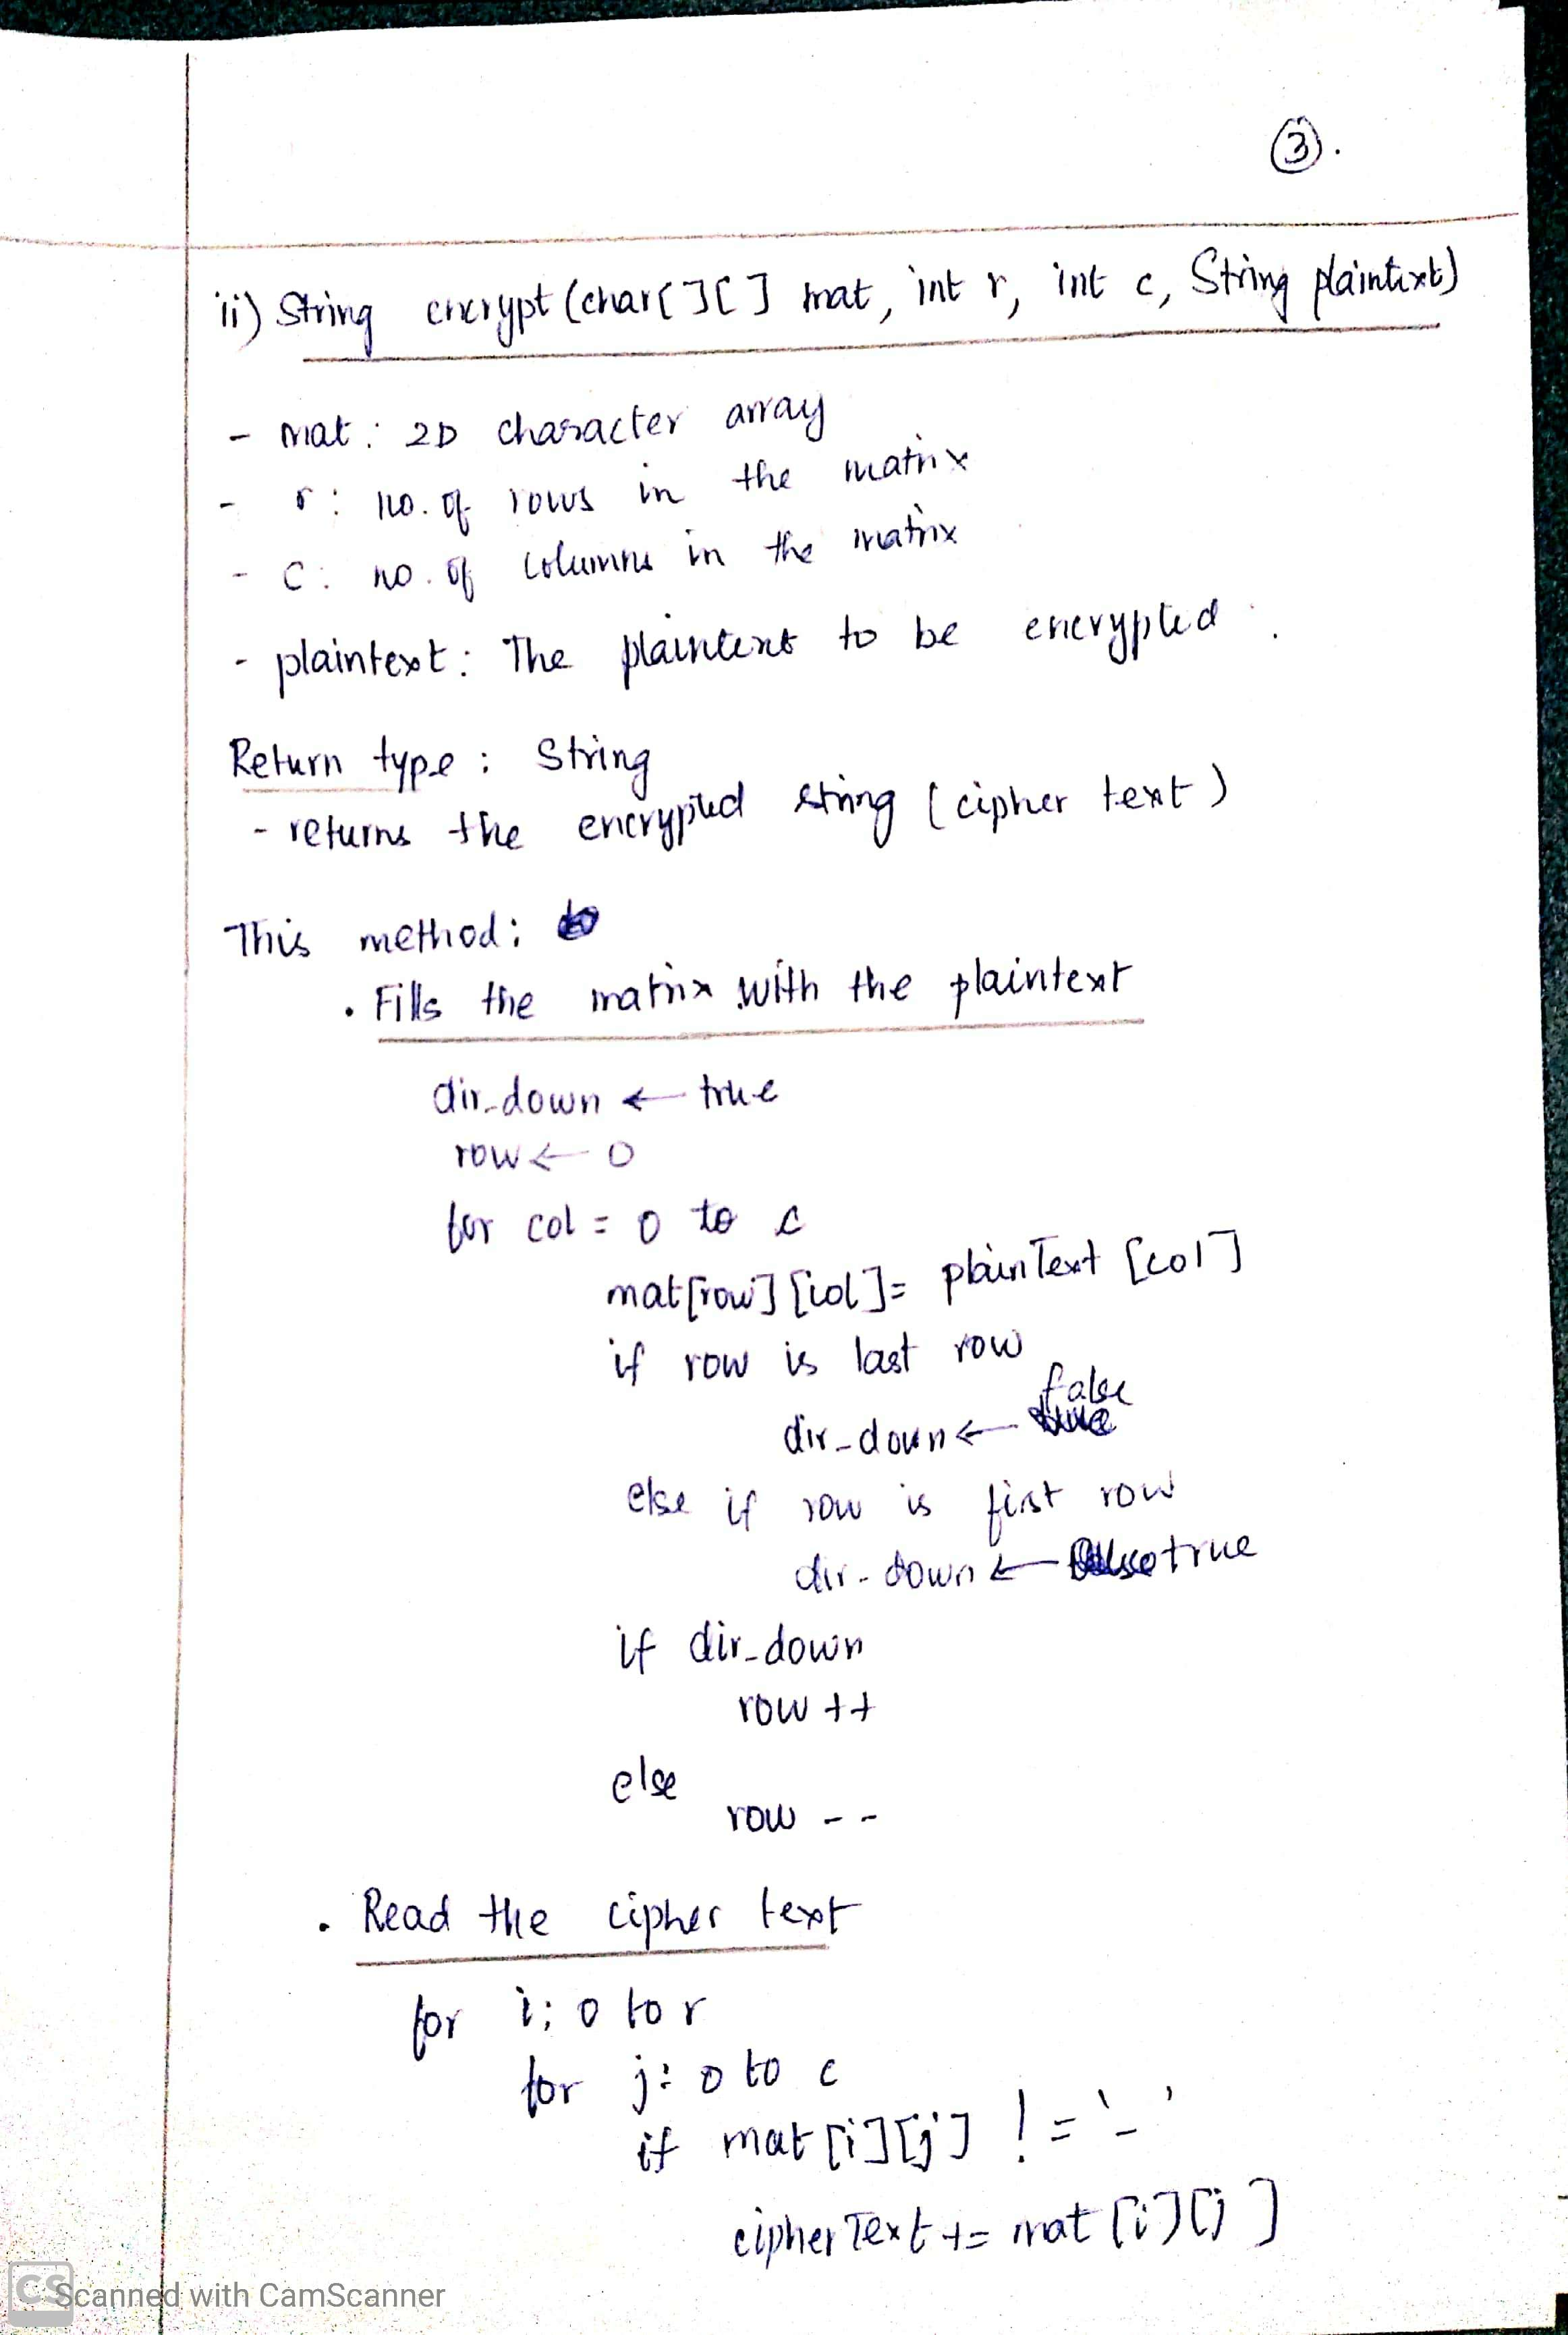 ③.
ii) String encrypt (char[][] mat, int r, int c, String plaintext)
- mat: 2D character array
- r: no. of rows in the matrix
- c: no. of columns in the matrix
- plaintext: The plaintext to be encrypted.
Return type: String
- returns the encrypted string (cipher text)
This method:
• Fills the matrix with the plaintext
dir_down ← true
row ← 0
for col = 0 to c
mat[row][col] = plainText [col]
if row is last row
dir_down ← false
else if row is first row
dir_down ← true
if dir_down
row ++
else
row --
• Read the cipher text
for i: 0 to r
for j: 0 to c
if mat[i][j] != '_'
cipherText += mat[i][j]
CS
Scanned with CamScanner